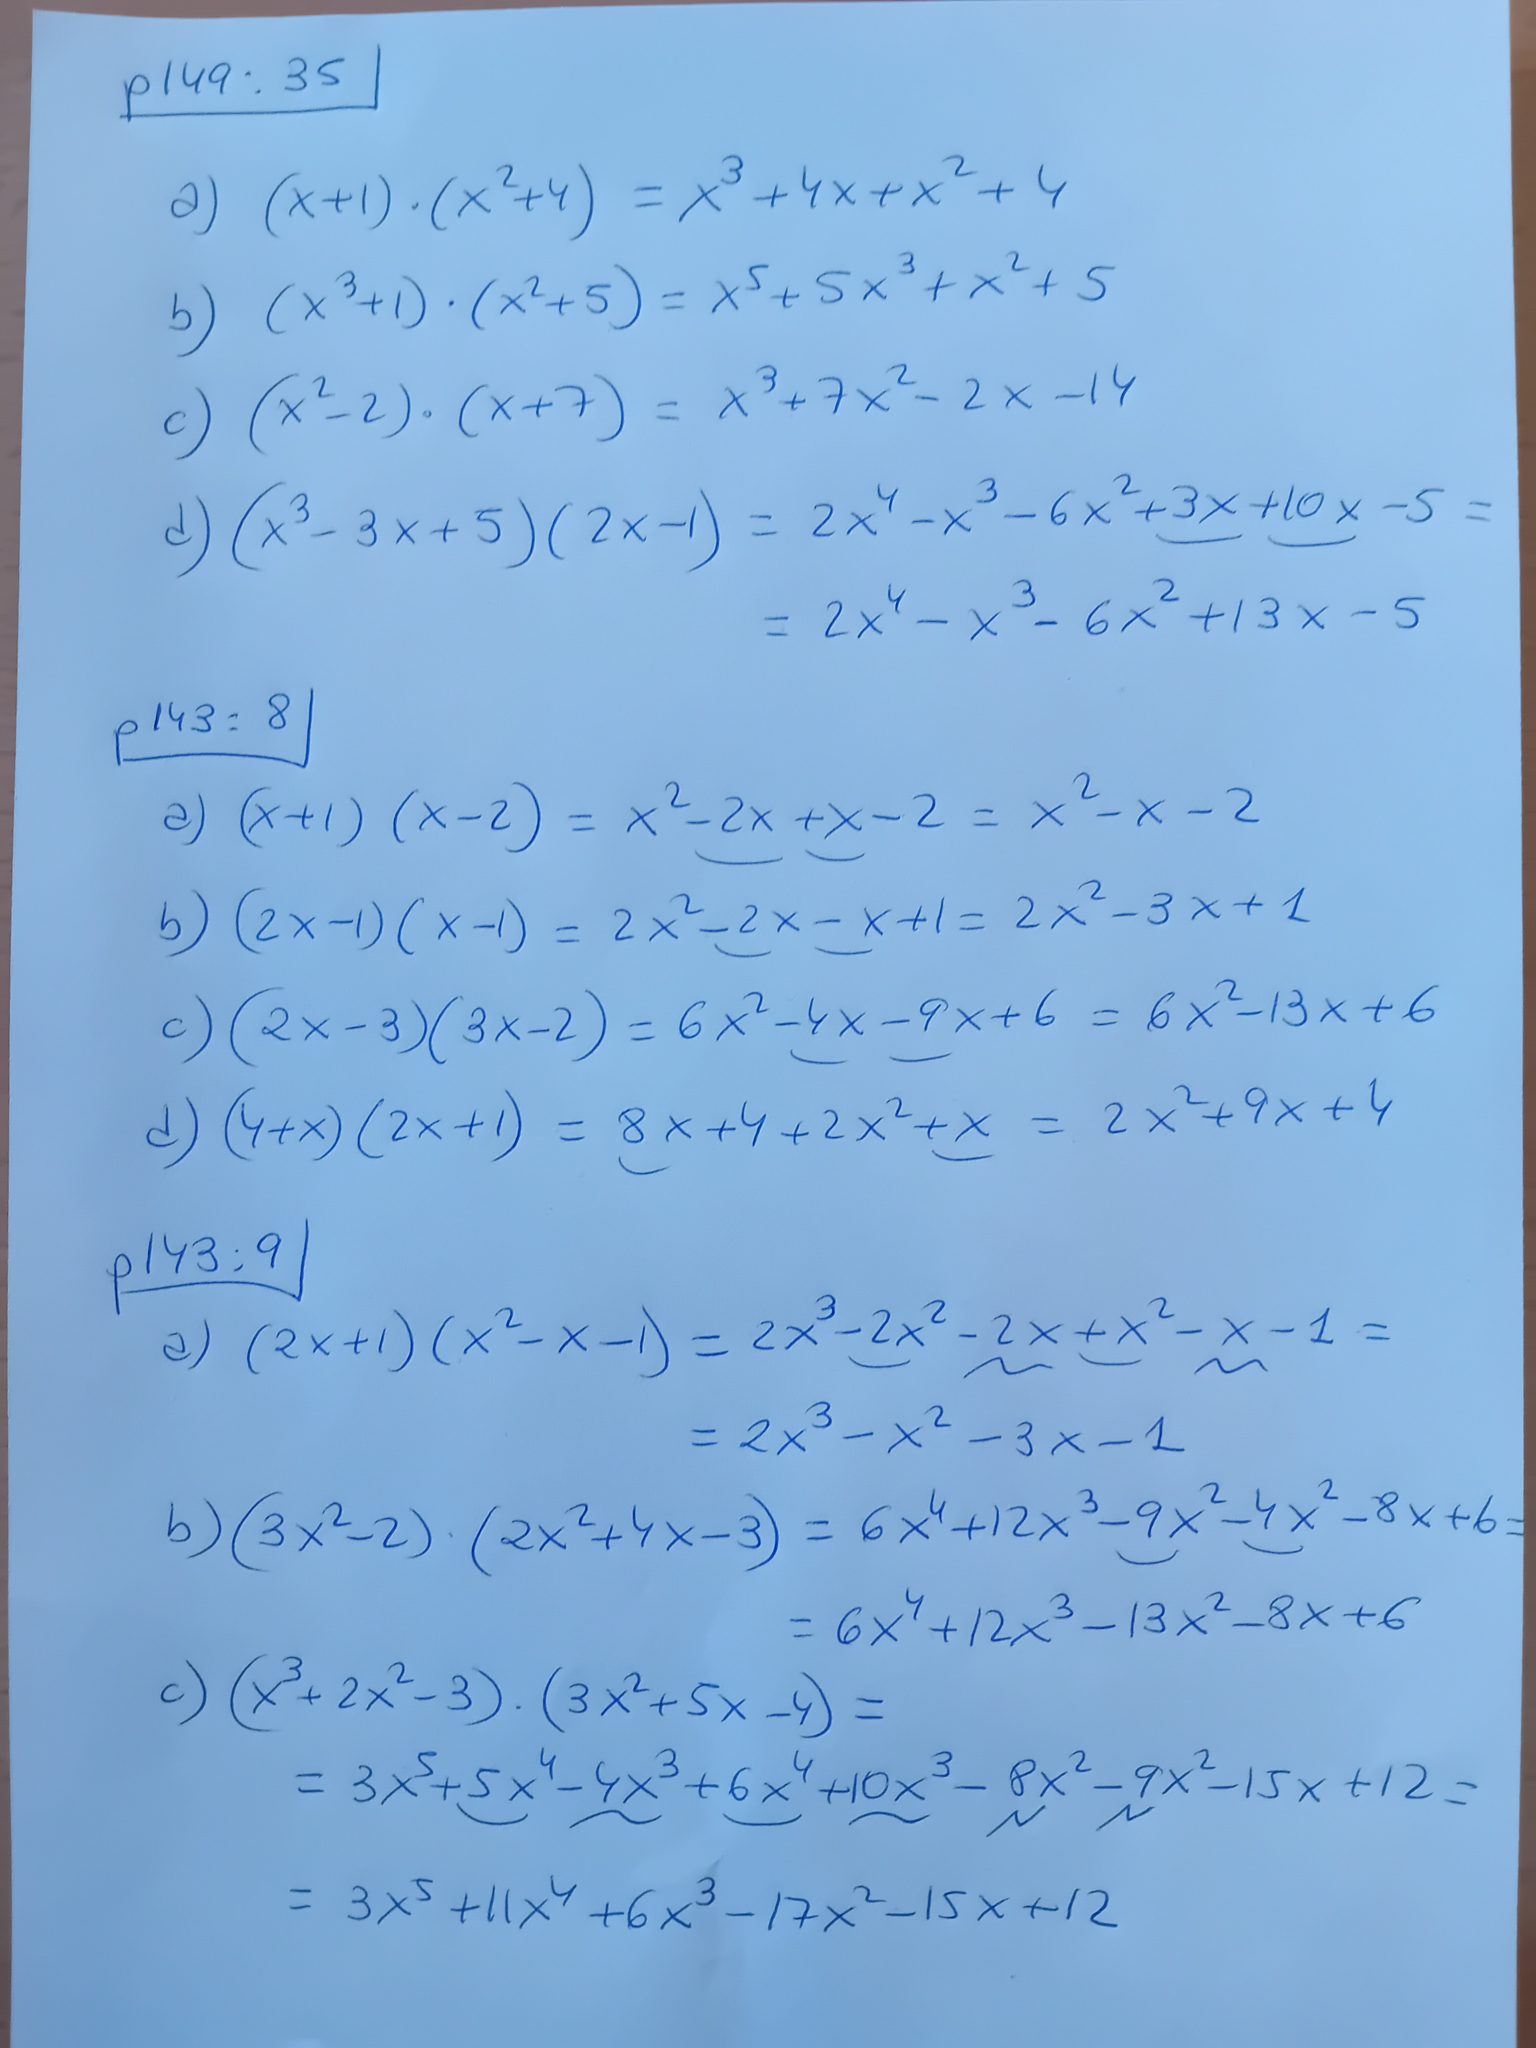 p149: 35
a) (x+1)·(x²+4) = x³+4x+x²+4
b) (x³+1)·(x²+5) = x⁵+5x³+x²+5
c) (x²-2)·(x+7) = x³+7x²-2x-14
d) (x³-3x+5)(2x-1) = 2x⁴-x³-6x²+3x+10x-5 =
= 2x⁴-x³-6x²+13x-5
p143: 8
a) (x+1)(x-2) = x²-2x+x-2 = x²-x-2
b) (2x-1)(x-1) = 2x²-2x-x+1 = 2x²-3x+1
c) (2x-3)(3x-2) = 6x²-4x-9x+6 = 6x²-13x+6
d) (4+x)(2x+1) = 8x+4+2x²+x = 2x²+9x+4
p143: 9
a) (2x+1)(x²-x-1) = 2x³-2x²-2x+x²-x-1 =
= 2x³-x²-3x-1
b) (3x²-2)·(2x²+4x-3) = 6x⁴+12x³-9x²-4x²-8x+6 =
= 6x⁴+12x³-13x²-8x+6
c) (x³+2x²-3)·(3x²+5x-4) =
= 3x⁵+5x⁴-4x³+6x⁴+10x³-8x²-9x²-15x+12 =
= 3x⁵+11x⁴+6x³-17x²-15x+12